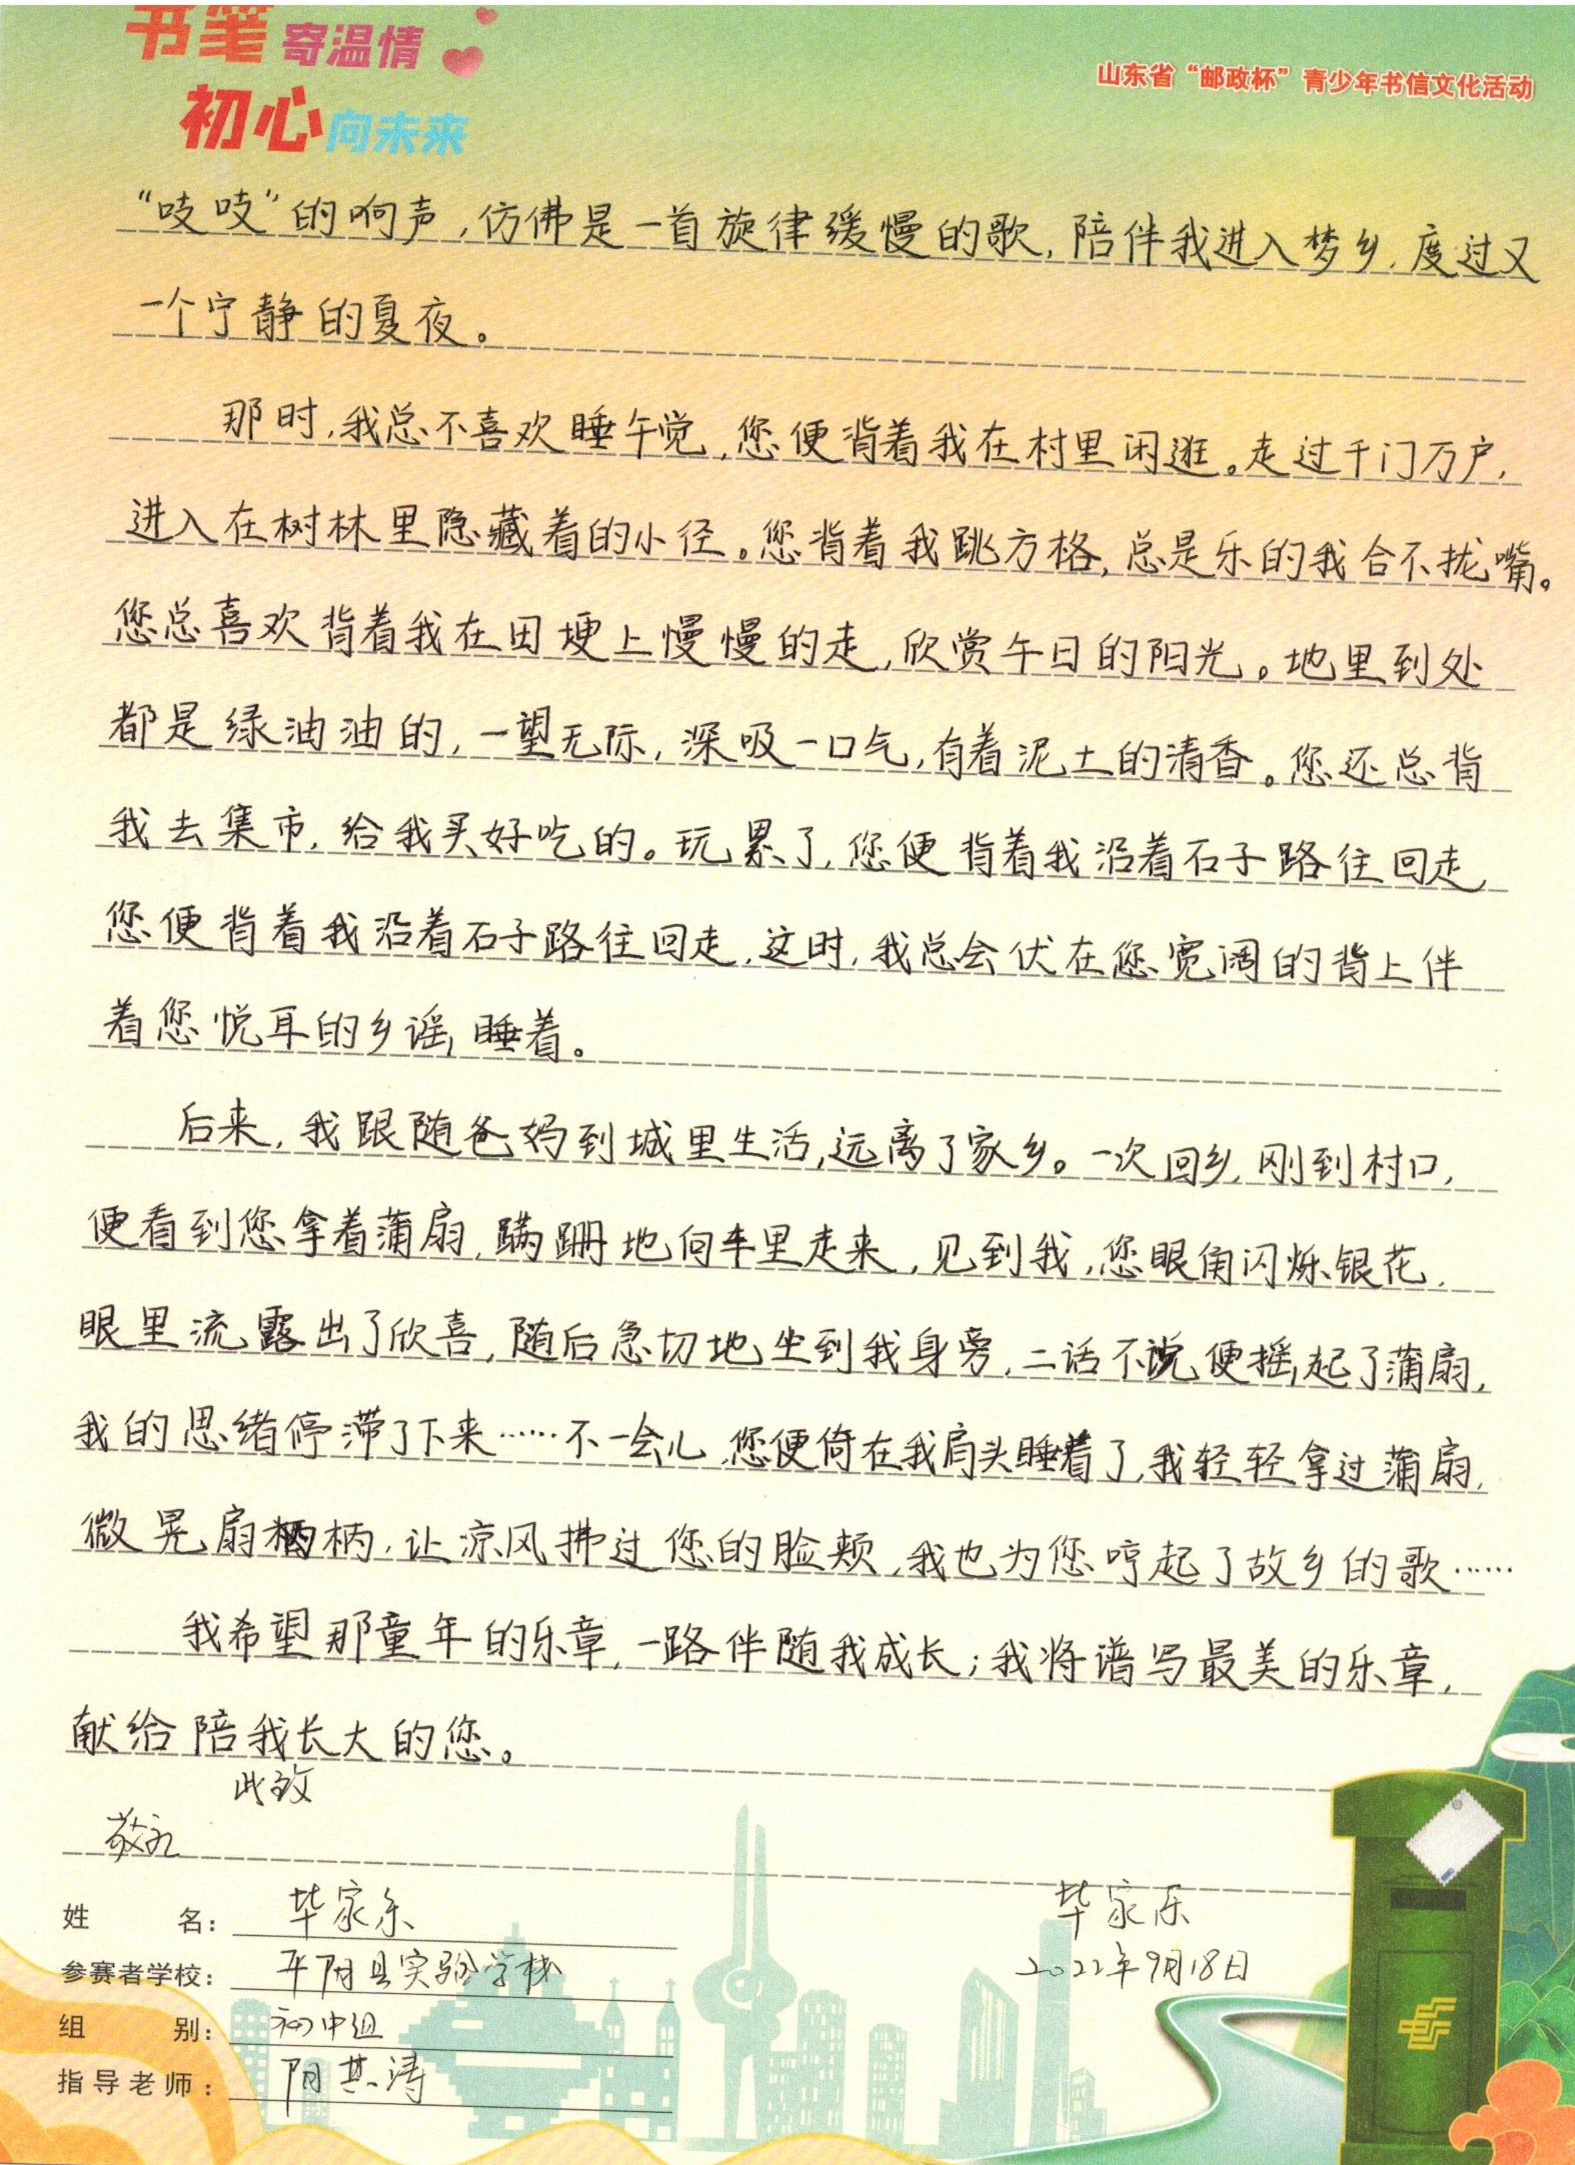 书笔寄温情
初心向未来
山东省“邮政杯”青少年书信文化活动
“吱吱”的响声,仿佛是一首旋律缓慢的歌,陪伴我进入梦乡,度过又
一个宁静的夏夜。
那时,我总不喜欢睡午觉,您便背着我在村里闲逛。走过千门万户,
进入在树林里隐藏着的小径。您背着我跳方格,总是乐的我合不拢嘴。
您总喜欢背着我在田埂上慢慢的走,欣赏午日的阳光。地里到处
都是绿油油的,一望无际,深吸一口气,有着泥土的清香。您还总背
我去集市,给我买好吃的。玩累了,您便背着我沿着石子路往回走,
您便背着我沿着石子路往回走,这时,我总会伏在您宽阔的背上伴
着您悦耳的乡谣,睡着。
后来,我跟随爸妈到城里生活,远离了家乡。一次回乡,刚到村口,
便看到您拿着蒲扇,蹒跚地向车里走来,见到我,您眼角闪烁银花,
眼里流露出了欣喜,随后急切地坐到我身旁,二话不说便摇起了蒲扇,
我的思绪停滞了下来……不一会儿,您便倚在我肩头睡着了,我轻轻拿过蒲扇,
微晃扇柄,让凉风拂过您的脸颊,我也为您哼起了故乡的歌……
我希望那童年的乐章,一路伴随我成长;我将谱写最美的乐章,
献给陪我长大的您。
此致
敬礼
姓名:毕家乐 毕家乐
参赛者学校:平阴县实验学校 2022年9月18日
组别:初中组
指导老师:阴其涛